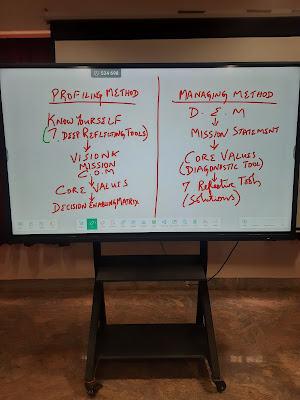 524 698
PROFILING METHOD
KNOW YOURSELF
(7. DEEP REFLECTING TOOLS)
VISION &
MISSION
C.O.M
CORE VALUES
DECISION ENABLING MATRIX
MANAGING METHOD
D. E. M
MISSION STATEMENT
CORE VALUES
(DIAGONSTIC TOOL)
7 Reflective Tools
(Solutions)